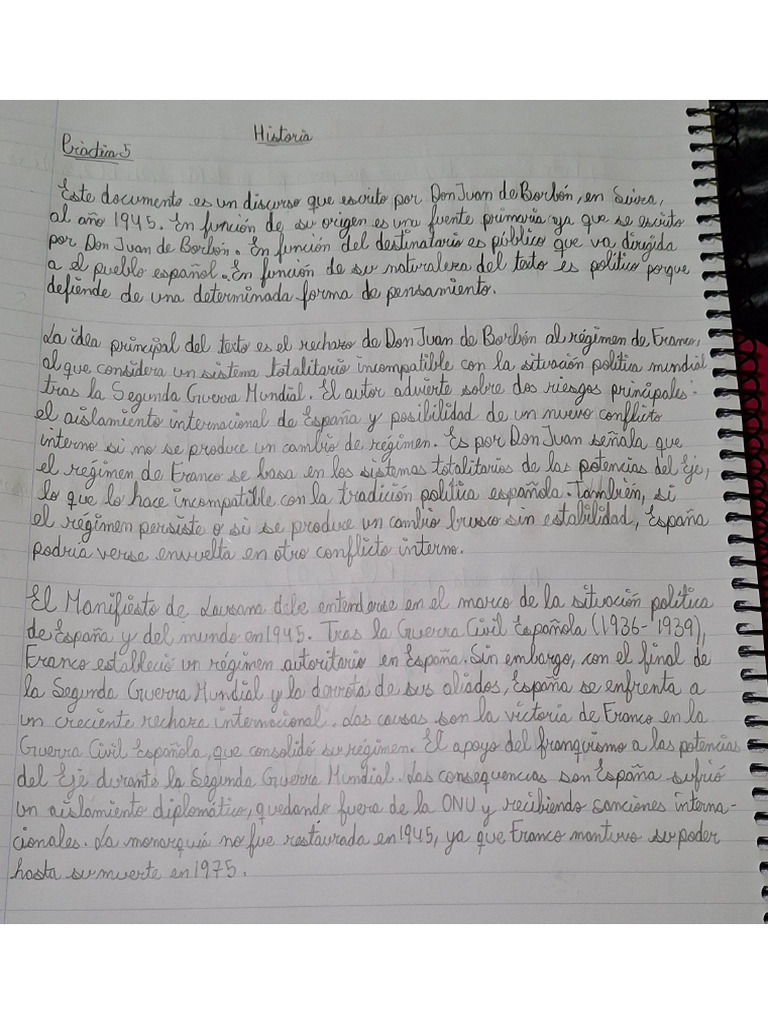 Historia
Práctica 5
Este documento es un discurso que escrito por Don Juan de Borbón, en Suiza,
al año 1945. En función de su origen es una fuente primaria ya que se escrito
por Don Juan de Borbón. En función del destinatario es público que va dirigida
a el pueblo español. En función de su naturaleza del texto es político porque
defiende de una determinada forma de pensamiento.
La idea principal del texto es el rechazo de Don Juan de Borbón al régimen de Franco,
al que considera un sistema totalitario incompatible con la situación política mundial
tras la Segunda Guerra Mundial. El autor advierte sobre dos riesgos principales:
el aislamiento internacional de España y posibilidad de un nuevo conflicto
interno si no se produce un cambio de régimen. Es por Don Juan señala que
el regimen de Franco se basa en los sistemas totalitarios de las potencias del Eje,
lo que lo hace incompatible con la tradición política española. También, si
el régimen persiste o si se produce un cambio brusco sin estabilidad, España
podría verse envuelta en otro conflicto interno.
El Manifiesto de Lausana debe entenderse en el marco de la situación política
de España y del mundo en 1945. Tras la Guerra Civil Española (1936-1939),
Franco estableció un régimen autoritario en España. Sin embargo, con el final de
la Segunda Guerra Mundial y la derrota de sus aliados, España se enfrenta a
un creciente rechazo internacional. Las causas son la victoria de Franco en la
Guerra Civil Española, que consolidó su régimen. El apoyo del franquismo a las potencias
del Eje durante la Segunda Guerra Mundial. Las consequencias son España sufrió
un aislamiento diplomático, quedando fuera de la ONU y recibiendo sanciones interna-
cionales. La monarquía no fue restaurada en 1945, ya que Franco mantuvo su poder
hasta su muerte en 1975.